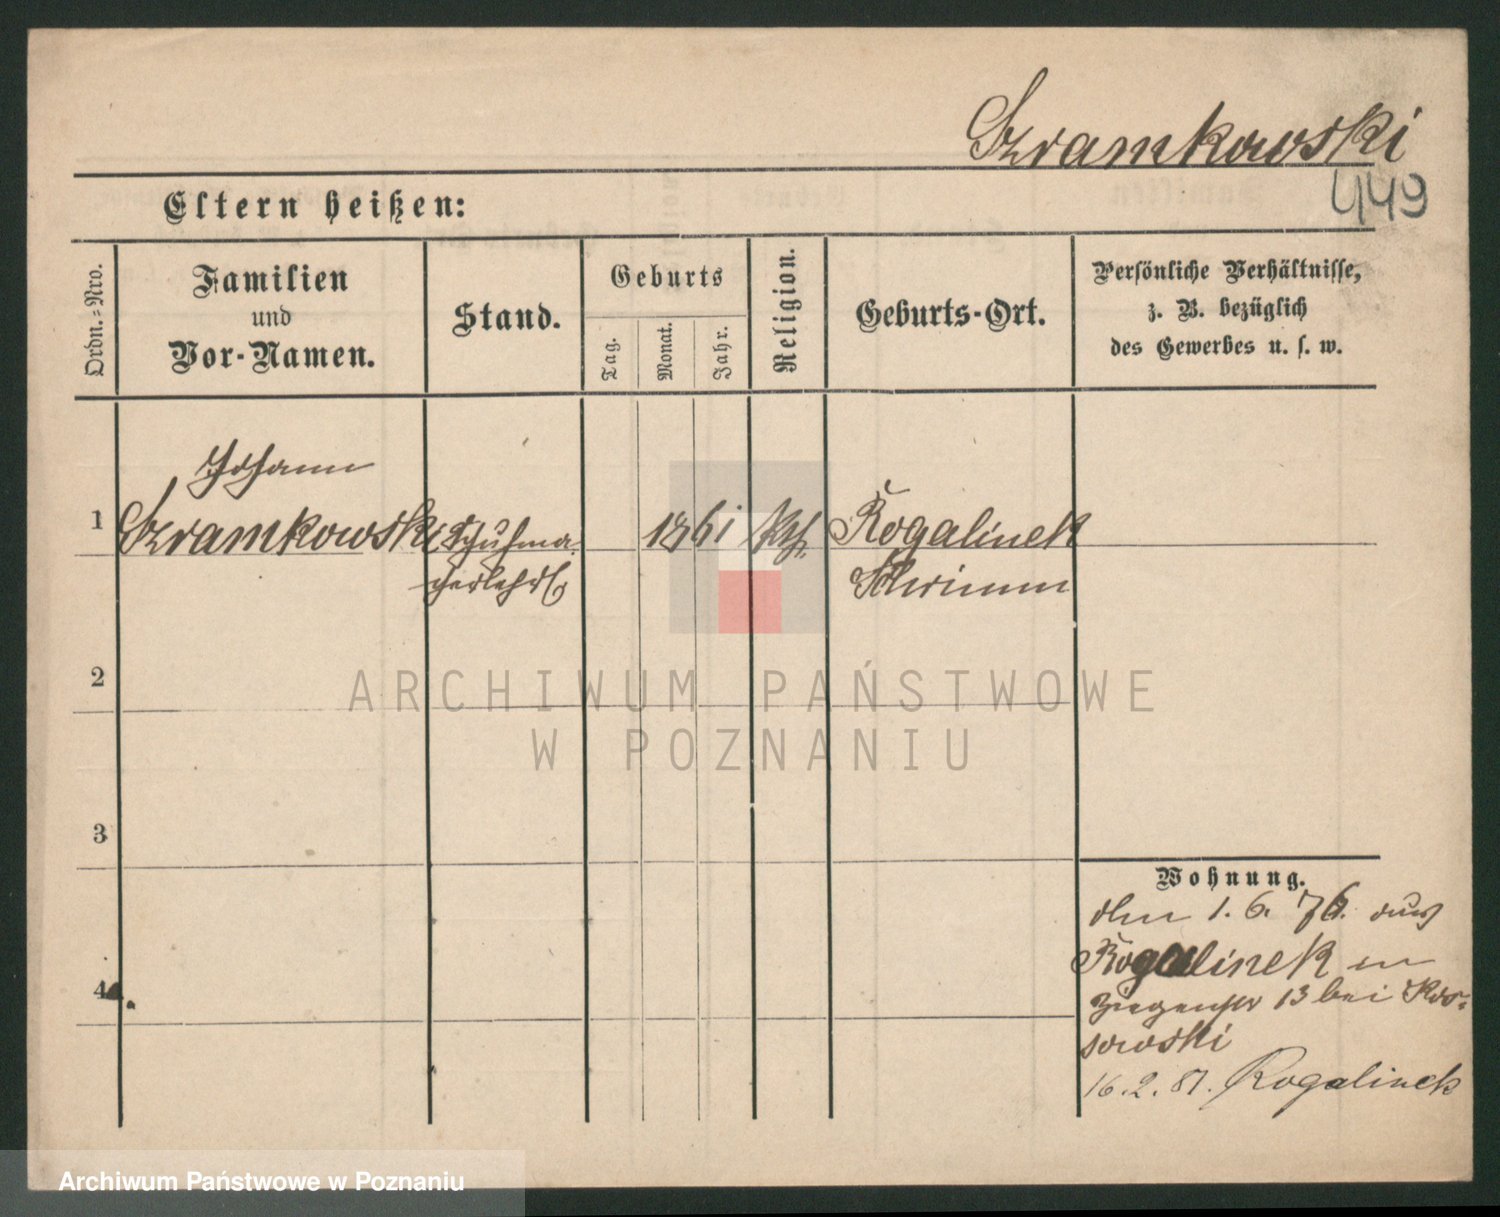 Szramkowski
449
Eltern heißen:
Ordn.=Nro.
Familien
und
Vor-Namen.
Stand.
Geburts
Tag.
Monat.
Jahr.
Religion.
Geburts-Ort.
Persönliche Verhältnisse,
z. B. bezüglich
des Gewerbes u. s. w.
Johann
1 Szramkowski Schuhma 1861 kth. Rogalinek
cherlehrl Schrimm
2
ARCHIWUM PAŃSTWOWE
W POZNANIU
3
Wohnung.
den 1. 6. 76. aus
4. Rogalinek
13 bei Kos=
sowski
16. 2. 81. Rogalinek
Archiwum Państwowe w Poznaniu